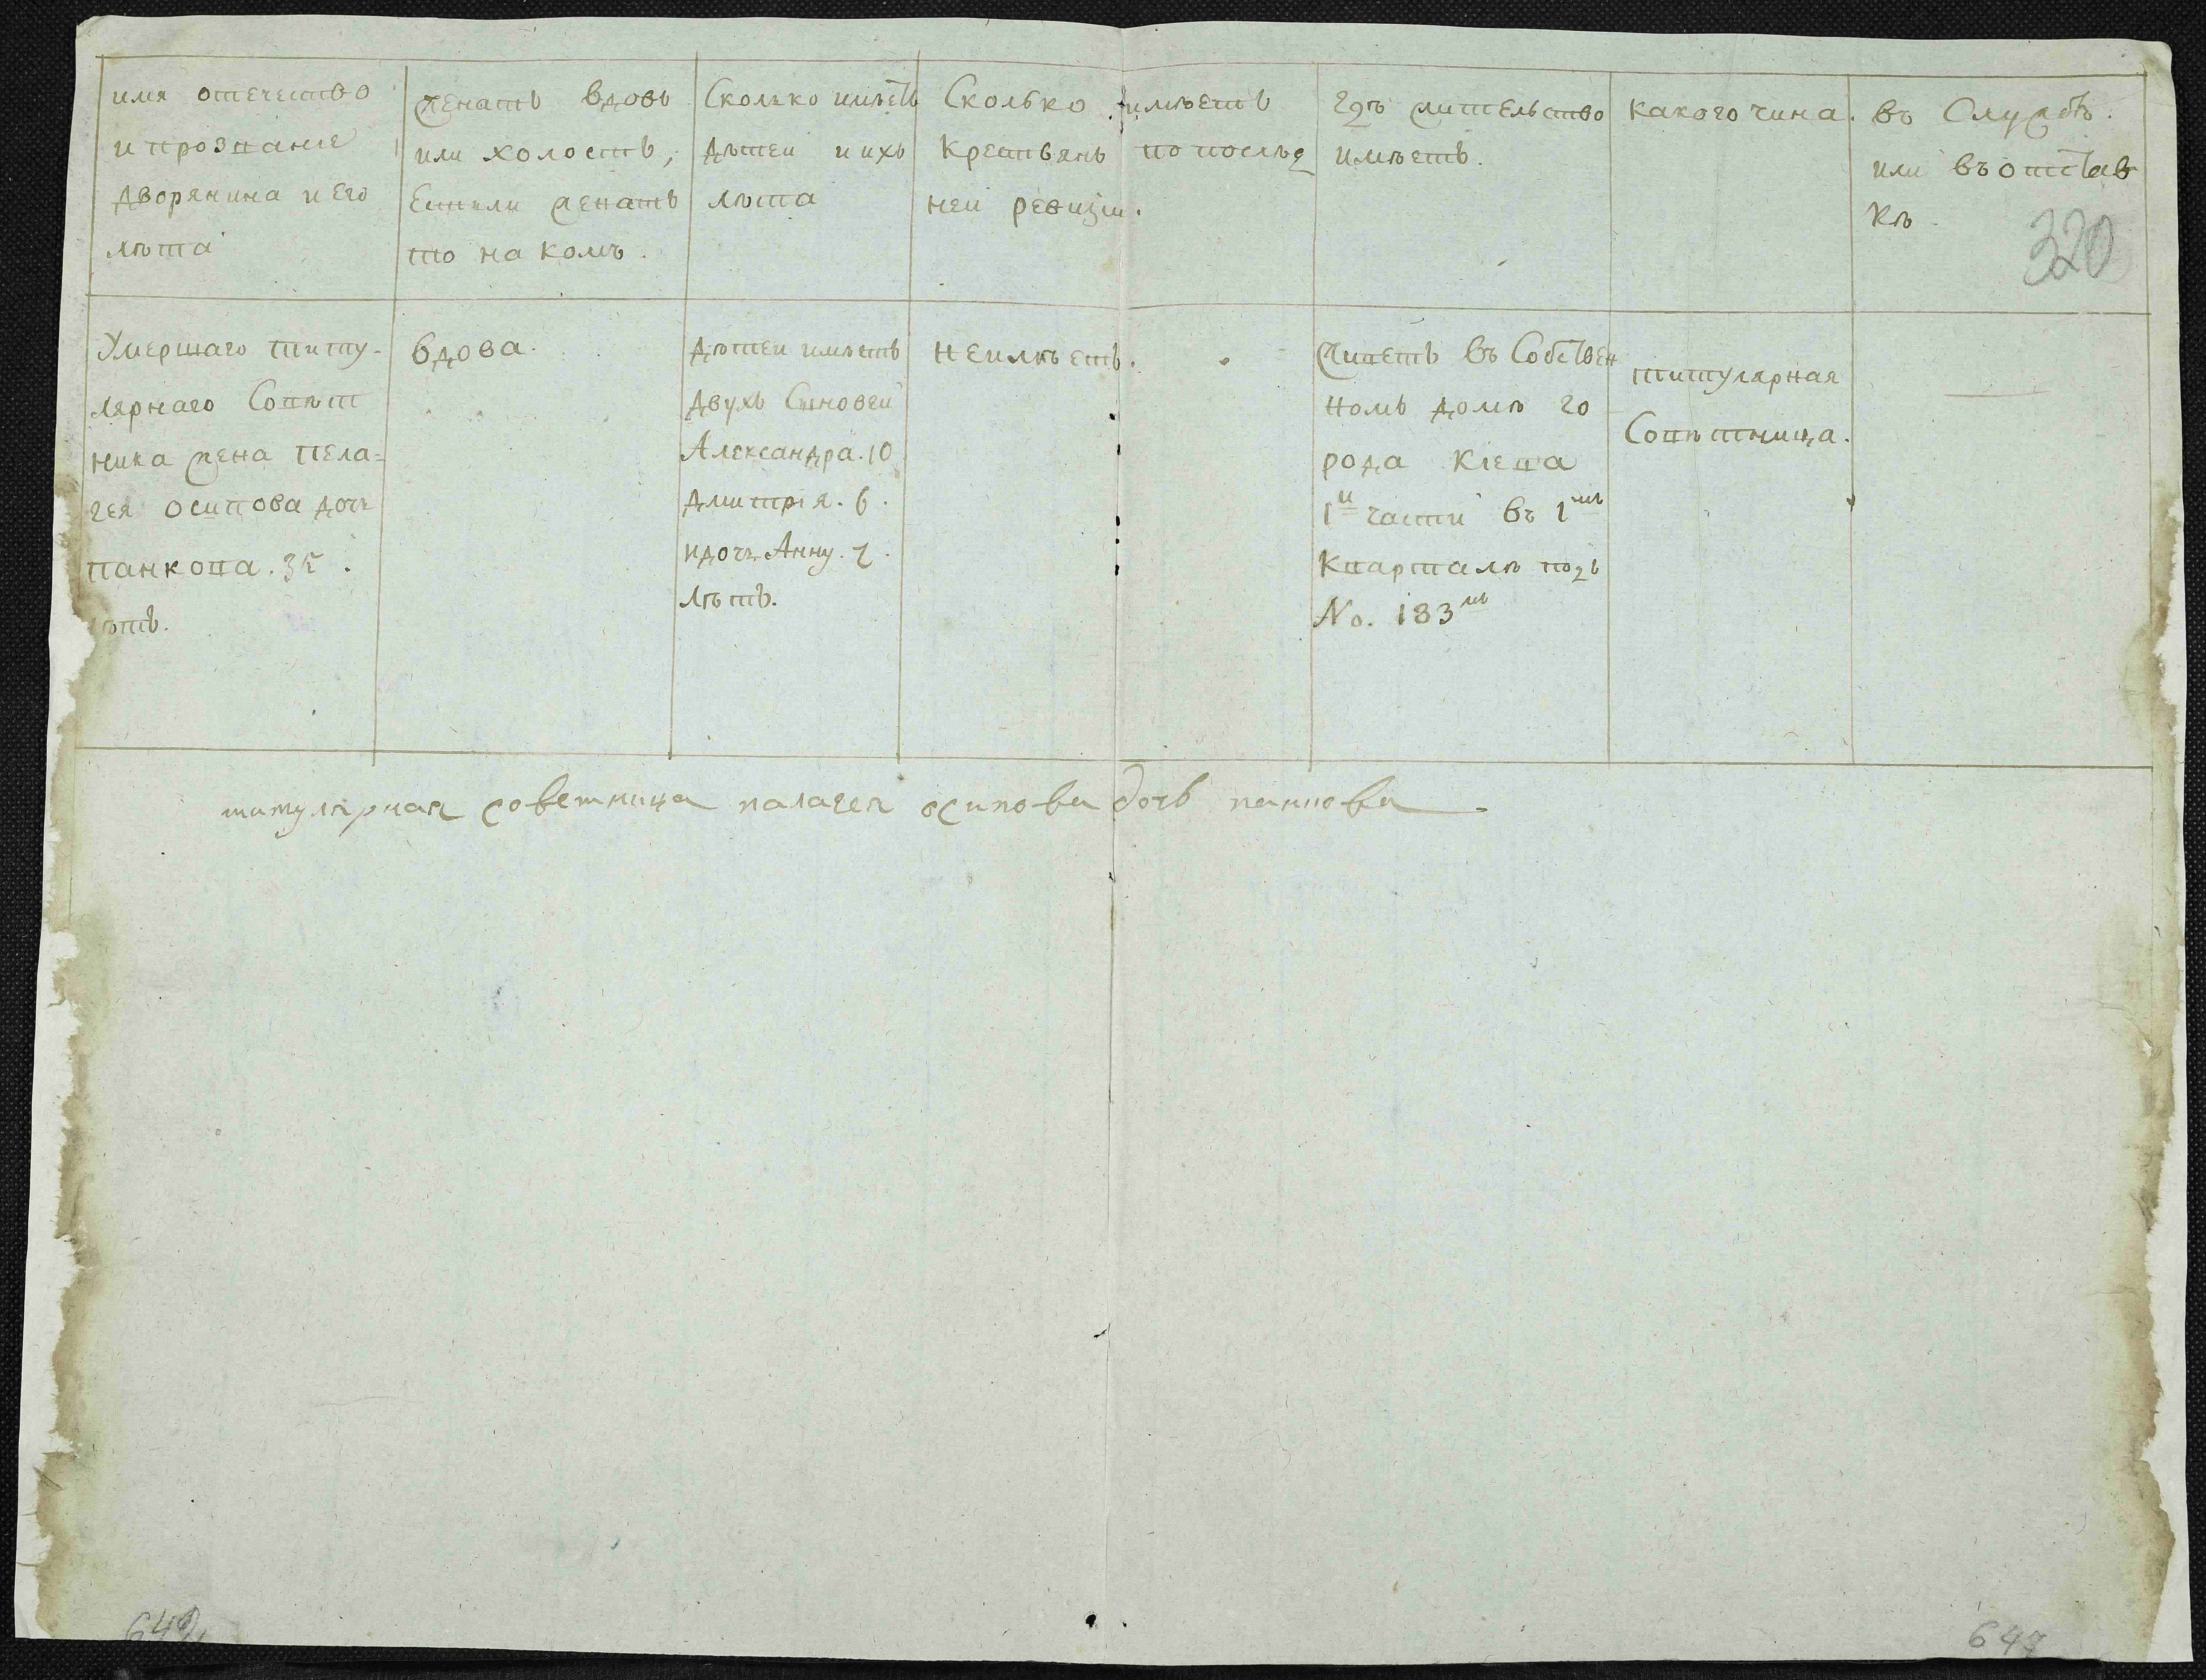 имя отечество
и прозвание
дворянина и Его
лѣта
женатъ вдовъ
или холостъ,
Естьли женатъ
то на комъ.
Сколко имѣетъ
дѣтей и ихъ
лѣта
Сколько имѣетъ
крестьянъ по послѣд
ней ревизіи.
гдѣ жительство
имѣетъ.
какого чина.
въ Службѣ.
или въ отстав
кѣ
320
Умершаго титу-
лярнаго Совѣт
ника жена Пела=
гея осипова дочь
панкова. 35.
лѣтъ.
вдова.
дѣтей имѣетъ
двухъ Синовей
Александра. 10
дмитрія. 6.
и дочь Анну. 7.
лѣтъ.
неимѣетъ.
Живетъ въ Собствен
номъ домѣ го
рода Кіева
1й части въ 1мъ
кварталѣ подъ
No. 183мъ
титулярная
Совѣтница.
титулярная советница палагея осипова дочь панкова
647